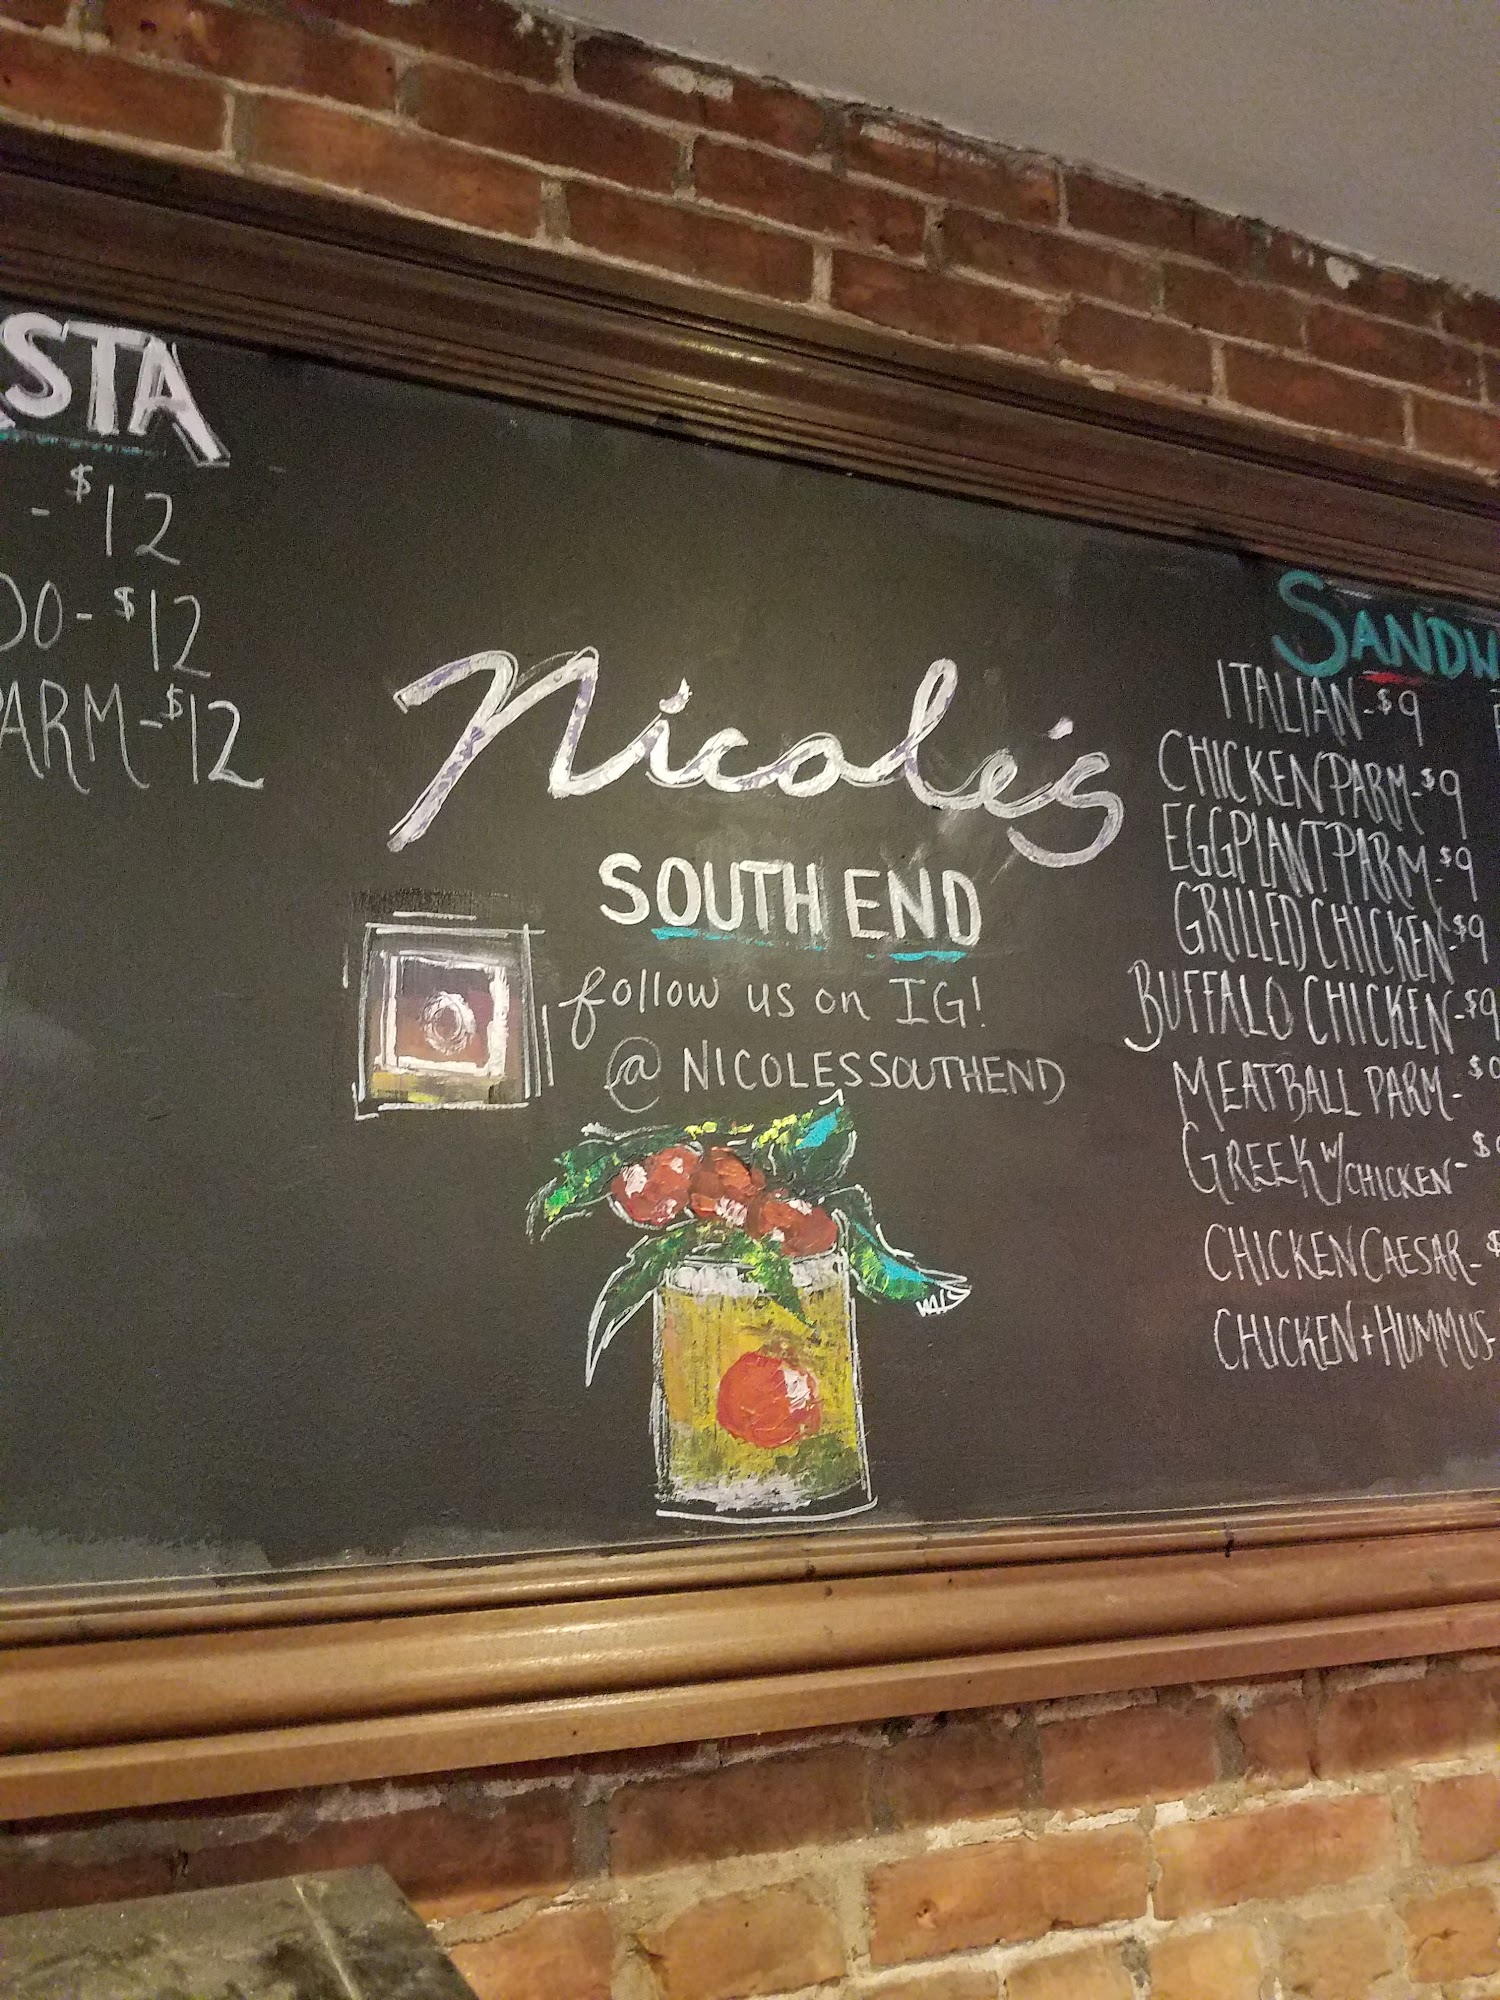 STA
- $12
DO - $12
PARM - $12
Nicole's
SOUTH END
follow us on IG!
@NICOLESSOUTHEND
SANDW
ITALIAN - $9
CHICKEN PARM - $9
EGGPLANT PARM - $9
GRILLED CHICKEN - $9
BUFFALO CHICKEN - $9
MEATBALL PARM - $
GREEK W/ CHICKEN - $
CHICKEN CAESAR - $
CHICKEN + HUMMUS -